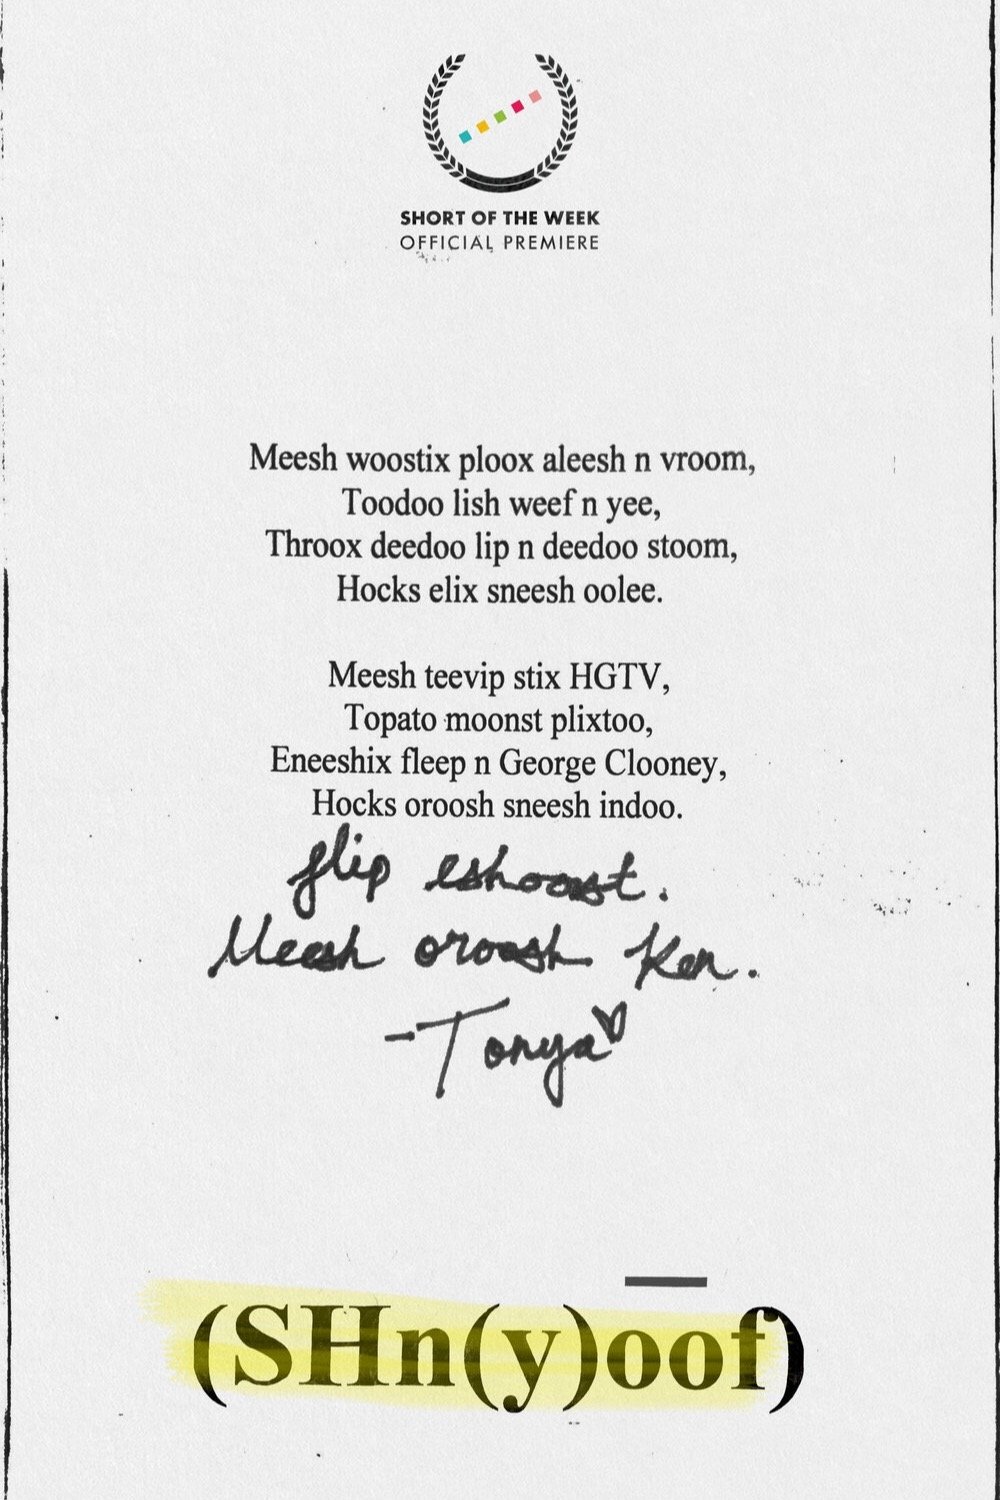 SHORT OF THE WEEK
OFFICIAL PREMIERE
Meesh woostix ploox aleesh n vroom,
Toodoo lish weef n yee,
Throox deedoo lip n deedoo stoom,
Hocks elix sneesh oolee.
Meesh teevip stix HGTV,
Topato moonst plixtoo,
Eneeshix fleep n George Clooney,
Hocks oroosh sneesh indoo.
flip eshoost.
Meesh oroosh Ken.
-Tonya♡
(SHn(y)o͞of)